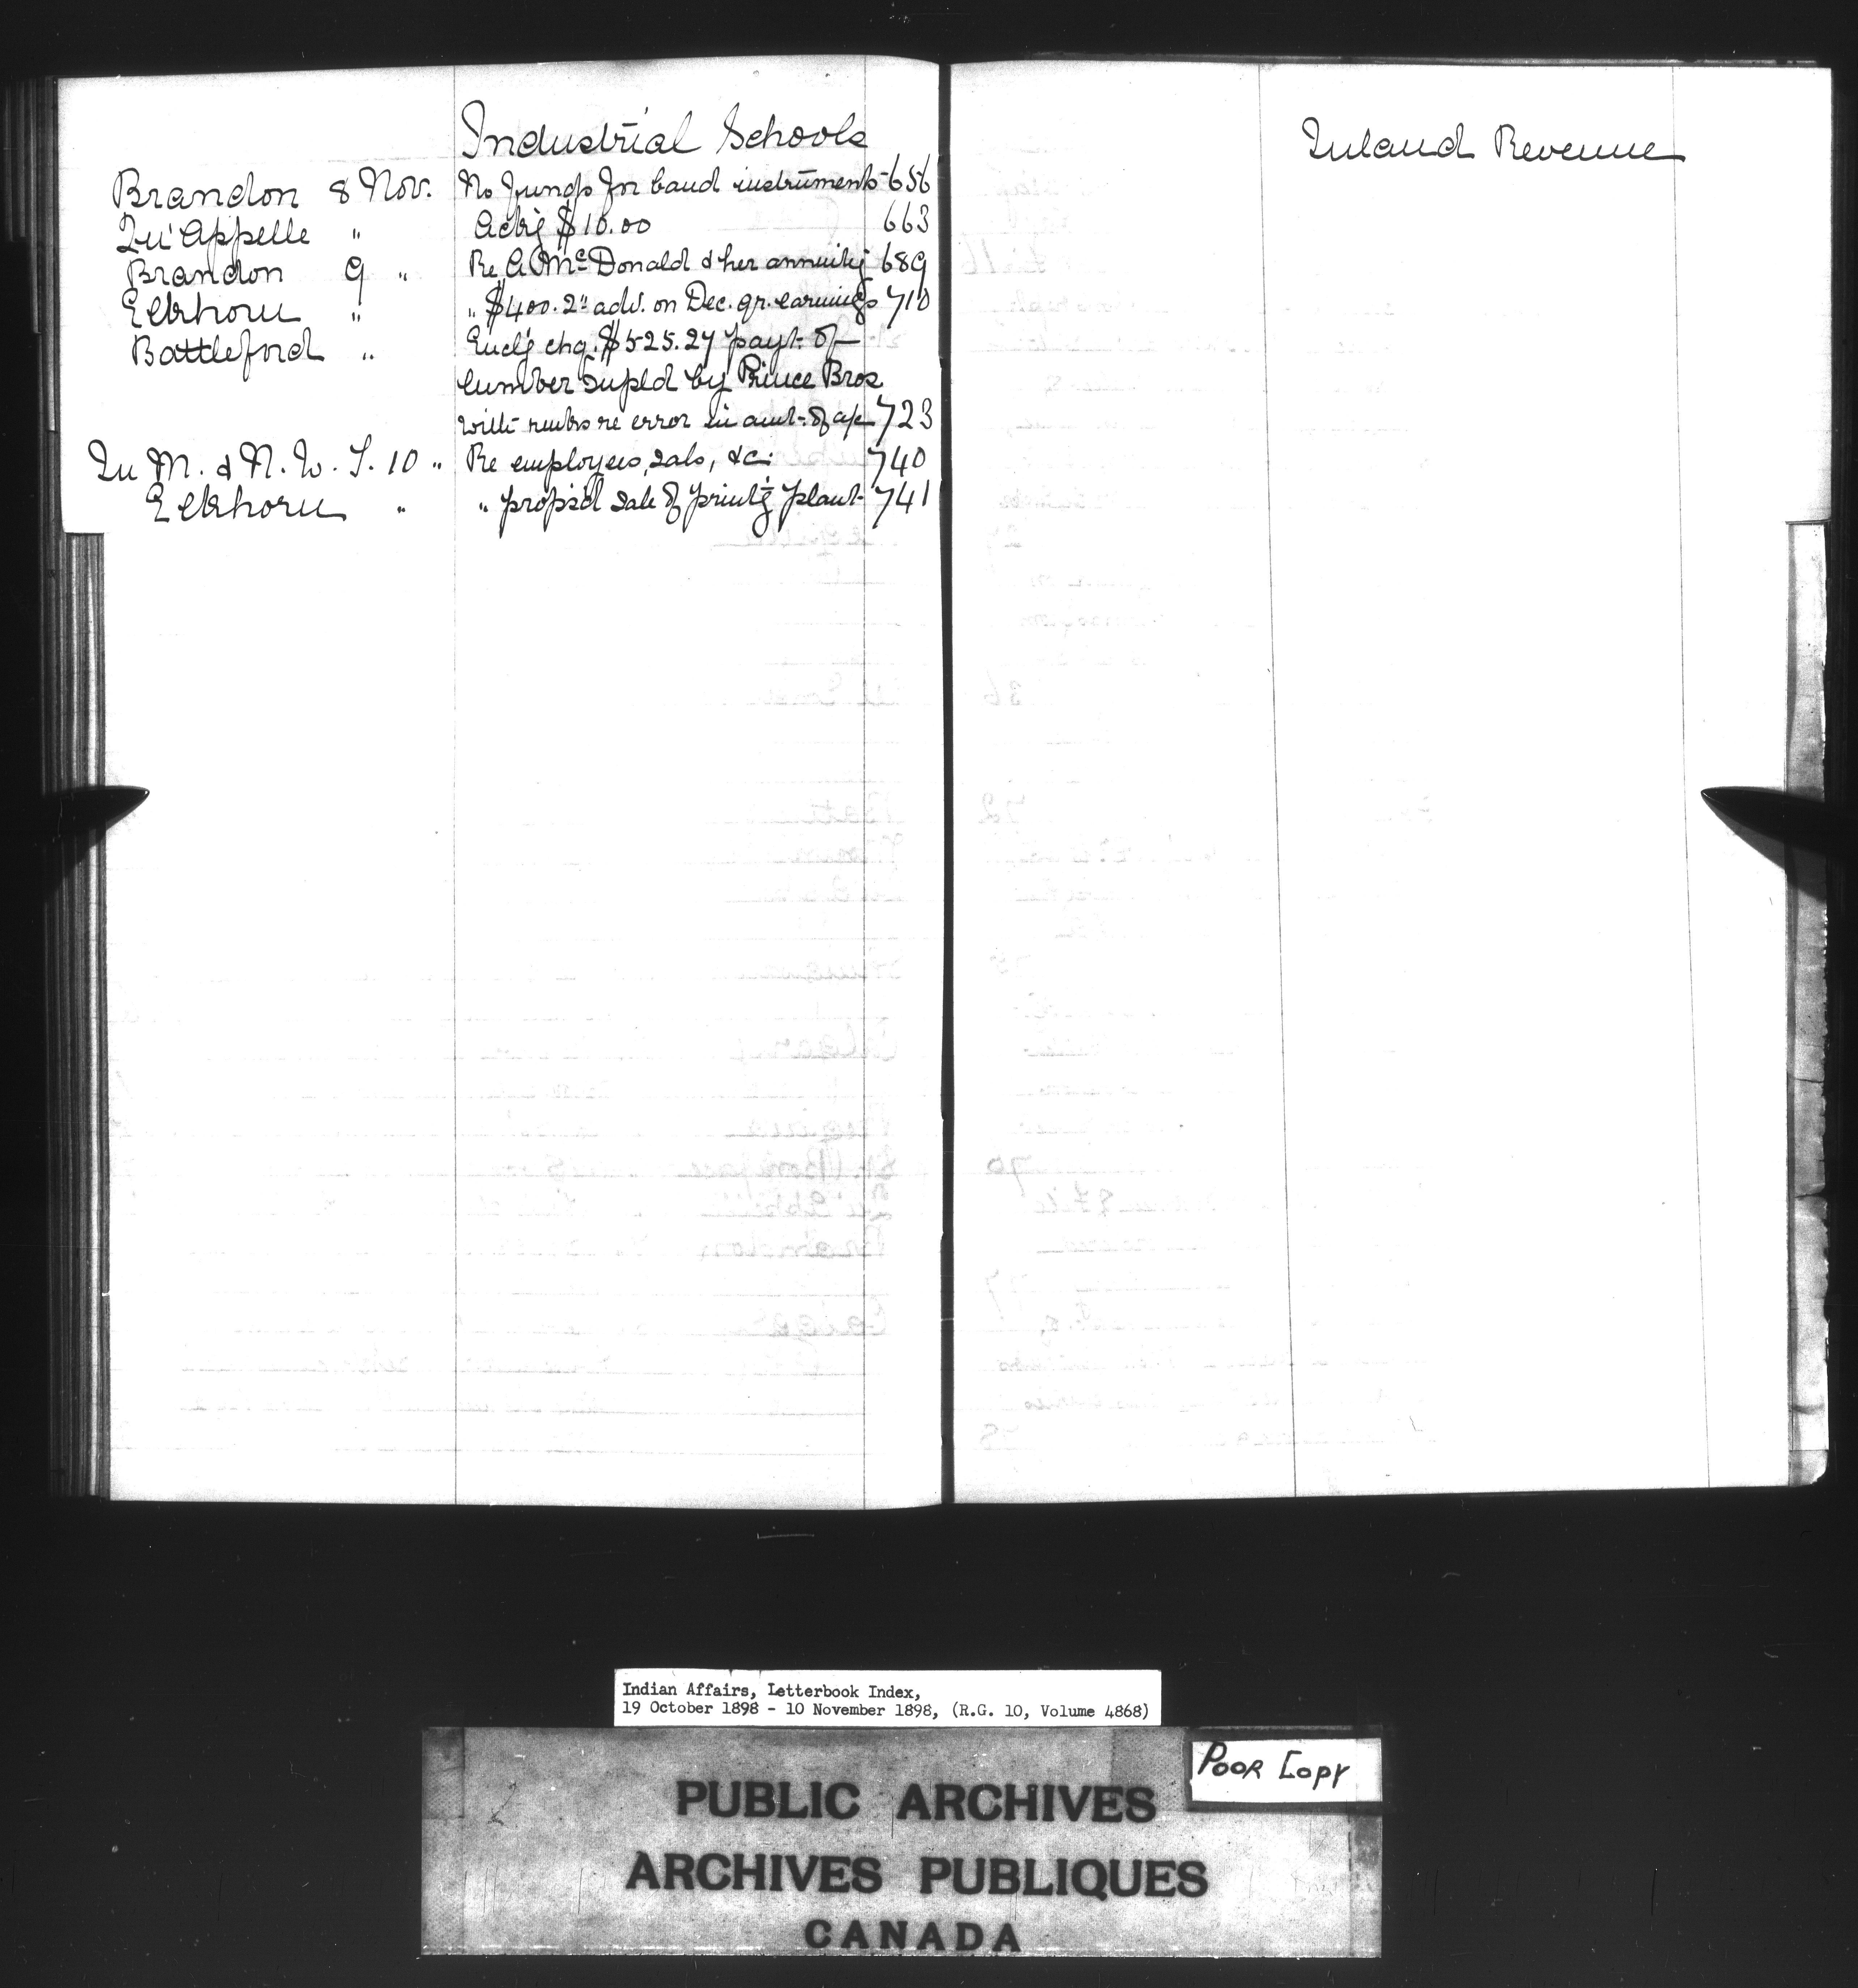 Industrial Schools
Brandon 8 Nov. No funds for band instruments 656
Qu'Appelle " Ackg $10.00 663
Brandon 9 " Re A McDonald & her annuity 689
Elkhorn " " $400. 2" adv. on Dec. qr. earnings 710
Battleford " Encl'g chq. $525.27 payt. of
lumber supld by Prince Bros
with remks re error in amt. of a/c 723
In M. & N. W. T. 10 " Re employees, sals, &c. 740
Elkhorn " " propos'd sale of print'g plant 741
Inland Revenue
Indian Affairs, Letterbook Index,
19 October 1898 - 10 November 1898, (R.G. 10, Volume 4868)
Poor Copy
PUBLIC ARCHIVES
ARCHIVES PUBLIQUES
CANADA